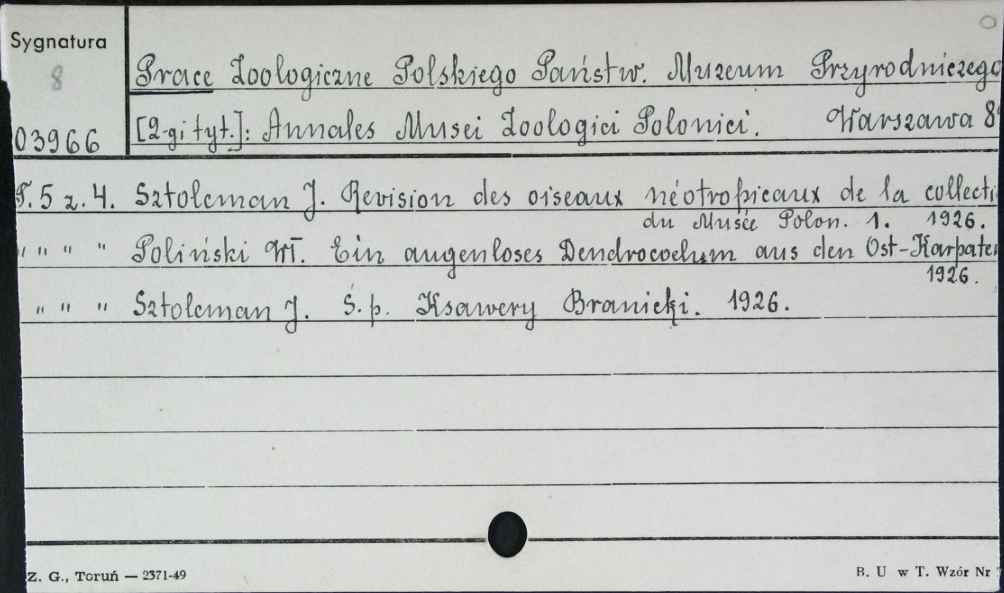 Sygnatura
8
03966
Prace Zoologiczne Polskiego Państw. Muzeum Przyrodniczego
[2-gi tyt.]: Annales Musei Zoologici Polonici. Warszawa 8°
T. 5 z. 4. Sztolcman J. Revision des oiseaux néotropicaux de la collecti
du Musée Polon. 1. 1926.
" " " " Poliński Wł. Ein augenloses Dendrocoelum aus den Ost-Karpate
1926.
" " " Sztolcman J. Ś.p. Ksawery Branicki. 1926.
Z. G., Toruń — 2371-49
B. U w T. Wzór Nr